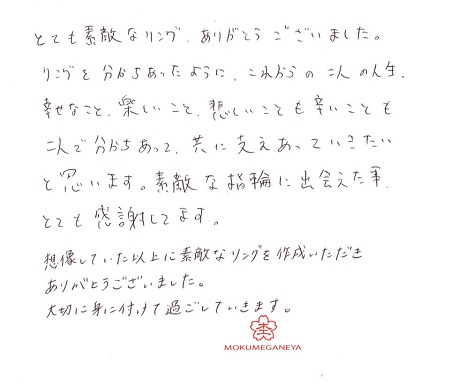 とても素敵なリング、ありがとうございました。
リングを分かちあったように、これからの二人の人生、
幸せなこと、楽しいこと、悲しいことも辛いことも
二人で分かちあって、共に支えあっていきたい
と思います。素敵な指輪に出会えた事、
とても感謝してます。
想像していた以上に素敵なリングを作成いただき
ありがとうございました。
大切に身に付けて過ごしていきます。
MOKUMEGANEYA